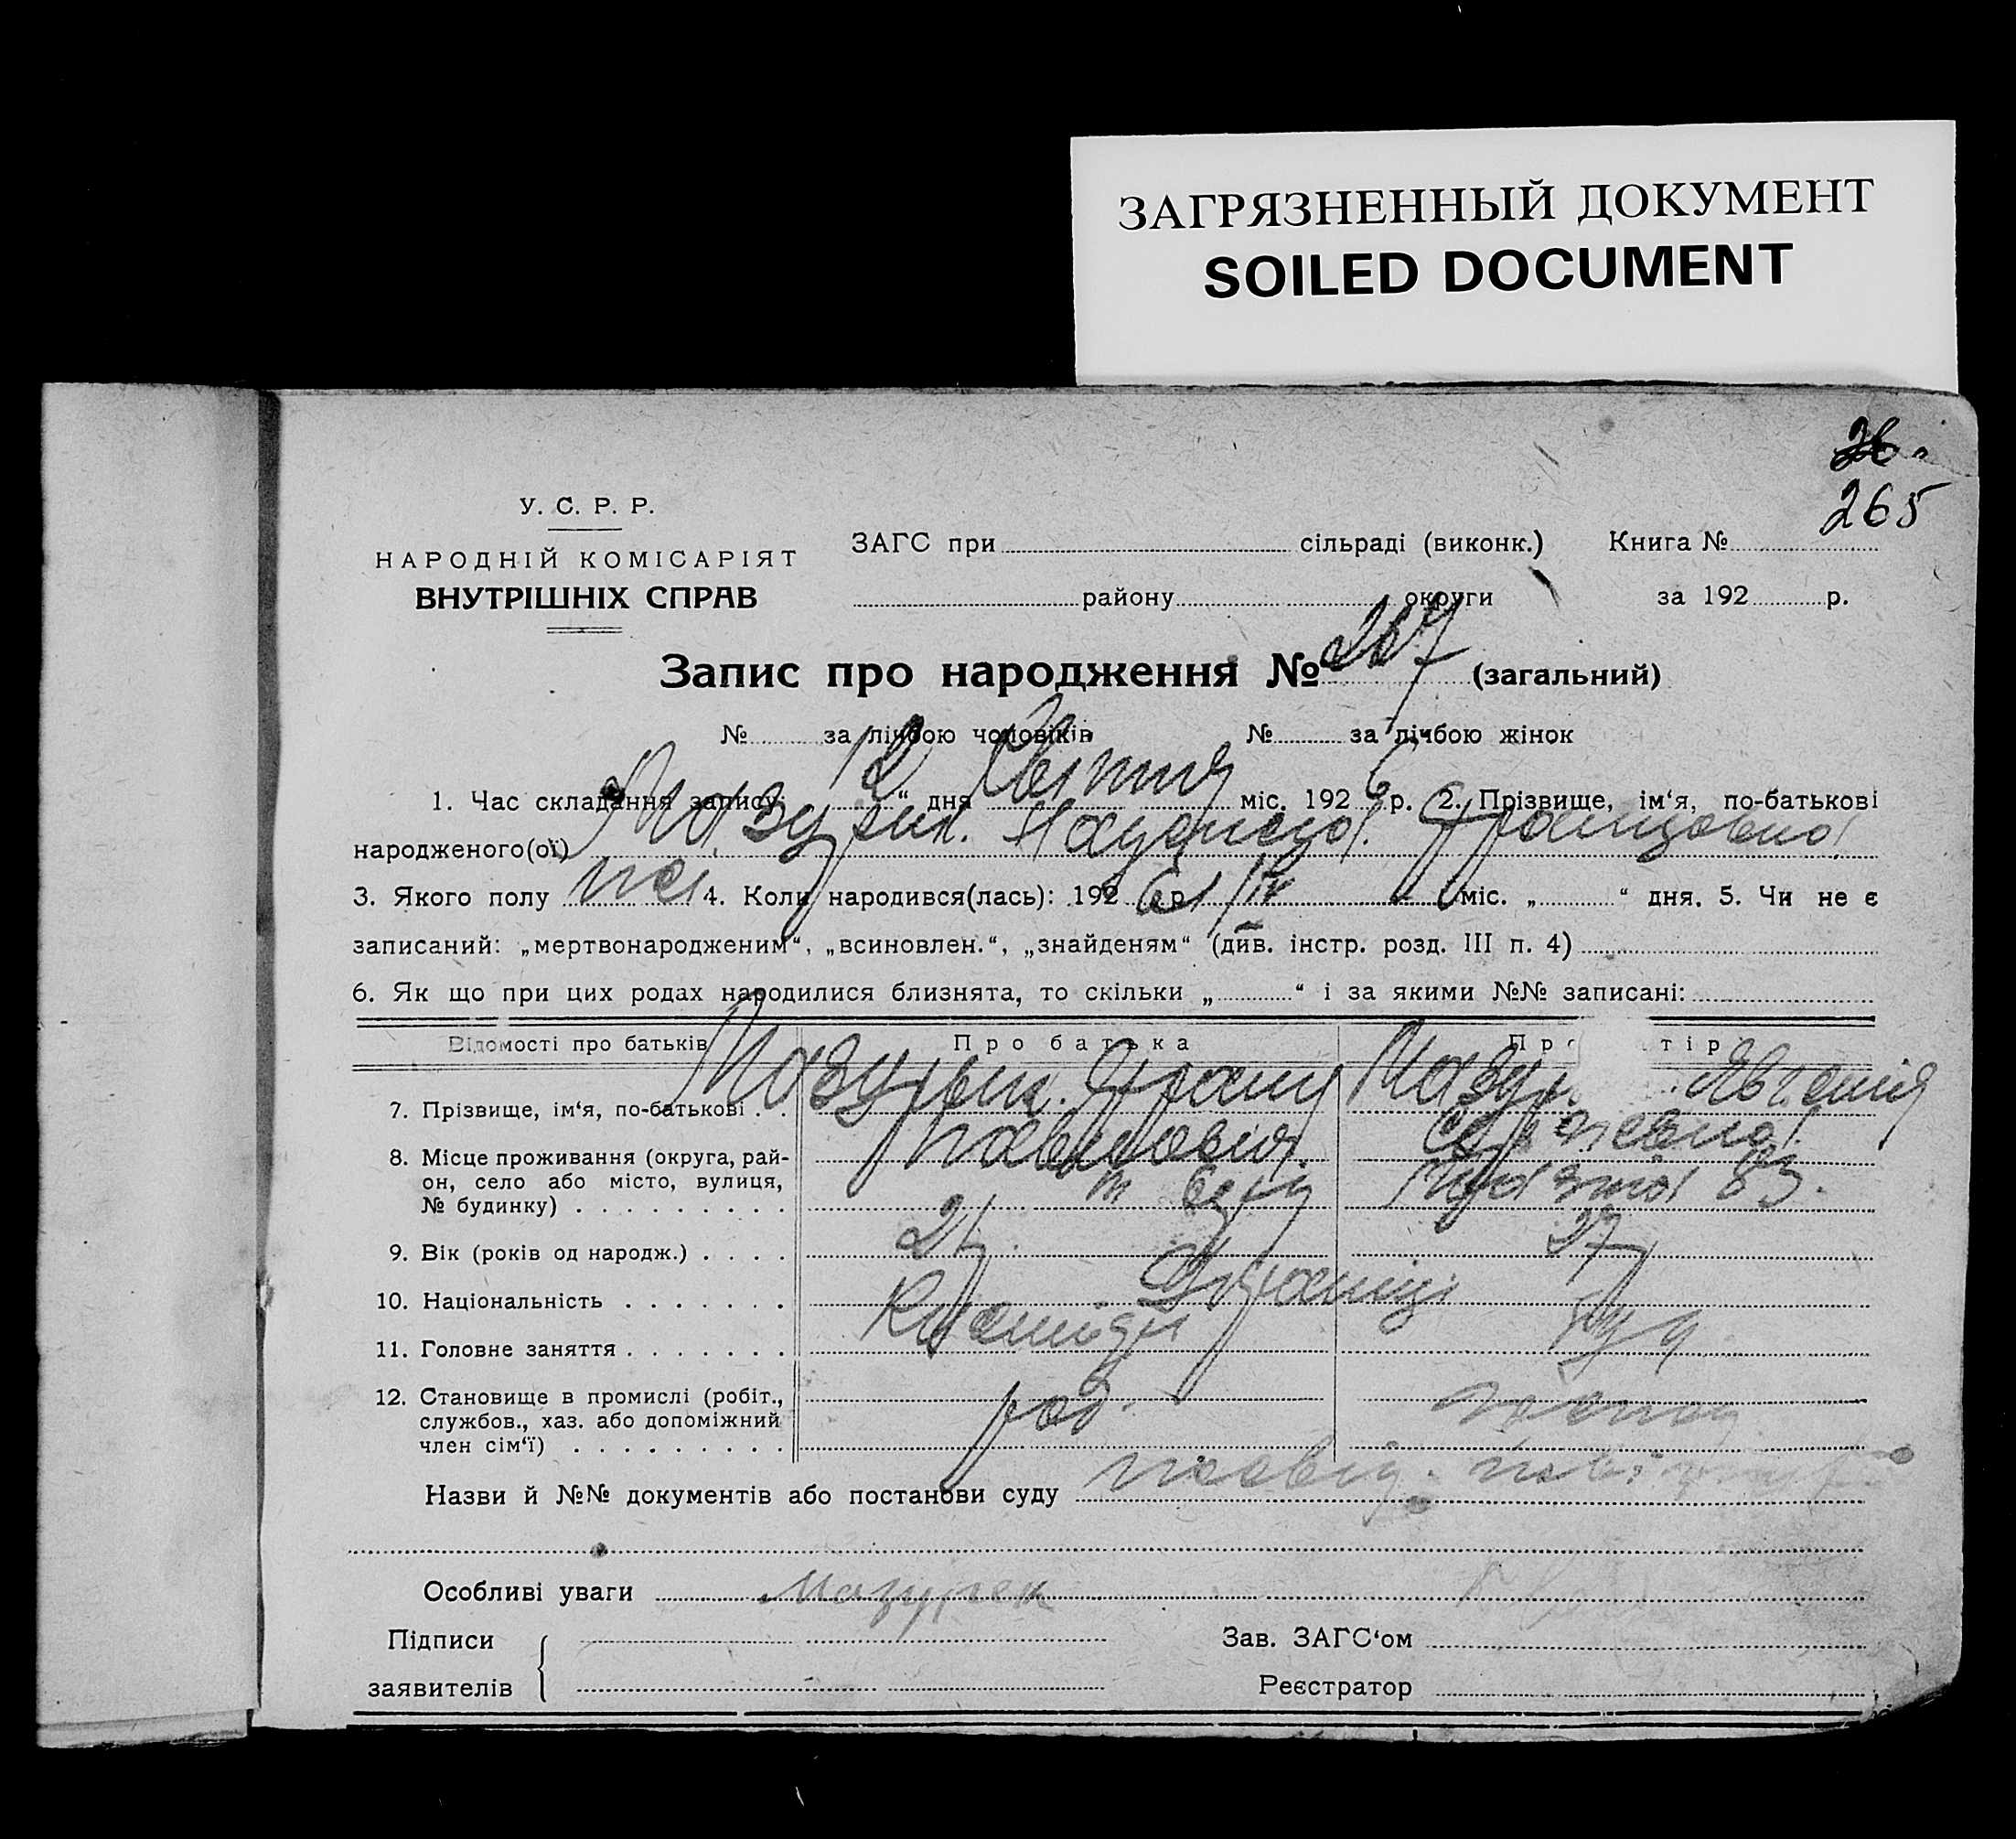 ЗАГРЯЗНЕННЫЙ ДОКУМЕНТ
SOILED DOCUMENT
265
У. С. Р. Р.
НАРОДНІЙ КОМІСАРІЯТ
ВНУТРІШНІХ СПРАВ
ЗАГС при сільраді (виконк.) Книга №
району округи за 192 р.
Запис про народження № 267 (загальний)
№ за лічбою чоловіків № за лічбою жінок
1. Час складання запису: 12 “ дня міс. 1926 р. 2. Прізвище, ім‘я, по-батькові
народженого(ої) Мазурек. Францовна
3. Якого полу 4. Коли народився(лась): 1926 р. 1/IV міс. „ “ дня. 5. Чи не є
записаний: „мертвонародженим“, „всиновлен.“, „знайденям“ (див. інстр. розд. III п. 4)
6. Як що при цих родах народилися близнята, то скільки „ “ і за якими №№ записані:
Відомості про батьків Про батька Пр тір
7. Прізвище, ім‘я, по-батькові . . Мазурек. Франц Мазур Явгенія
Павлович
8. Місце проживання (округа, рай-
он, село або місто, вулиця,
№ будинку) . . . . . . . . . 83.
9. Вік (років од народж.) . . . . 27
10. Національність . . . . . . . Українці
11. Головне заняття . . . . . . .
12. Становище в промислі (робіт.,
службов., хаз. або допоміжний
член сім‘ї) . . . . . . . . . роб.
Назви й №№ документів або постанови суду посвід.
Особливі уваги Мазурек
Підписи Зав. ЗАГС‘ом
заявителів Реєстратор